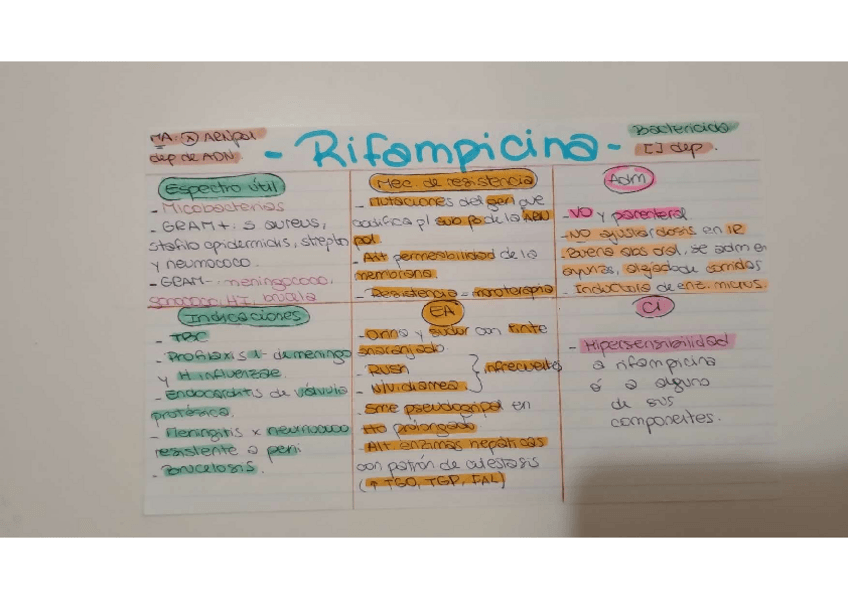 MA: ⓧ ARNpol
dep de ADN
- Rifampicina -
Bactericida
[] dep.
Espectro útil
- Micobacterias
- GRAM+: S aureus,
stafilo epidermidis, strepto
y neumococo.
- GRAM-: meningococo,
gonococo, HI, brucela
Mec. de resistencia
- Mutaciones del gen que
codifica p/ sub β de la ARN
pol
- Alt permeabilidad de la
membrana.
- Resistencia = monoterapia
Adm
- VO y parenteral
- NO ajustar dosis en IR
- Buena abs oral, se adm en
ayunas, alejada de comidas
- Inductora de enz. micros
Indicaciones
- TBC
- Profilaxis N- de meningo
y H influenzae.
- Endocarditis de válvula
protésica.
- Meningitis x neumococo
resistente a peni
- Brucelosis.
EA
- Orina y sudor con tinte
anaranjado.
- Rush
- N/V/diarrea.
infrecuente
- Sme pseudogripal en
tto prolongado
- Alt. enzimas hepáticas
con patrón de colestasis
(↑ TGO, TGP, FAL)
CI
- Hipersensibilidad
a rifampicina
ó a alguno
de sus
componentes.